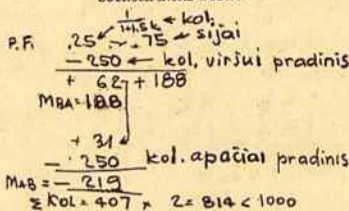 1
1+1.5k ← kol.
P.F. .25 .75 ← sijai
− 250 ← kol. viršui pradinis
+ 62 + 188
MBA = 188
+ 31
− 250 kol. apačiai pradinis
MAB = − 219
Σ KOL = 407 × 2 = 814 < 1000